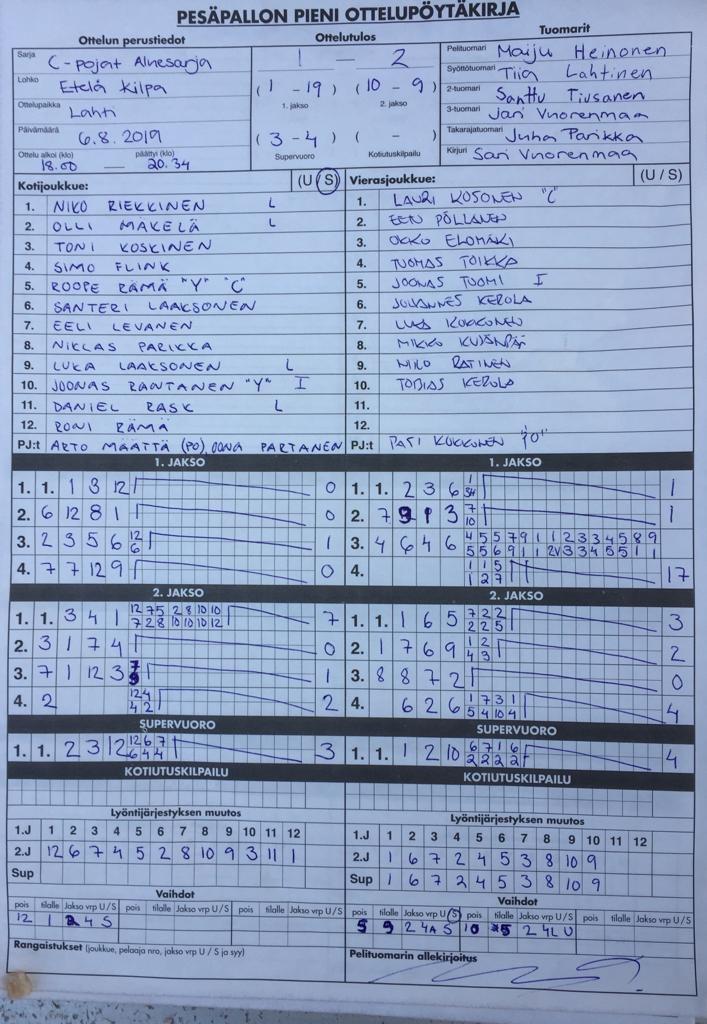 PESÄPALLON PIENI OTTELUPÖYTÄKIRJA
Ottelun perustiedot
Sarja C-pojat Aluesarja
Lohko Etelä Kilpa
Ottelupaikka Lahti
Päivämäärä 6.8.2019
Ottelu alkoi (klo) päättyi (klo)
18.00 — 20.34
Ottelutulos
1 — 2
(1 - 19) (10 - 9)
1. jakso 2. jakso
(3 - 4) ( - )
Supervuoro Kotiutuskilpailu
Tuomarit
Pelituomari Maiju Heinonen
Syöttötuomari Tiia Lahtinen
2-tuomari Santtu Tiusanen
3-tuomari Jari Vuorenmaa
Takarajatuomari Juha Parikka
Kirjuri Sari Vuorenmaa
Kotijoukkue: (U / S)
1. NIKO RIEKKINEN L
2. OLLI MÄKELÄ L
3. TONI KOSKINEN
4. SIMO FLINK
5. ROOPE RÄMÄ "Y" "C"
6. SANTERI LAAKSONEN
7. EELI LEVANEN
8. NIKLAS PARIKKA
9. LUKA LAAKSONEN L
10. JOONAS RANTANEN "Y" I
11. DANIEL RASK L
12. RONI RÄMÄ
PJ:t ARTO MÄÄTTÄ (PO), OONA PARTANEN
Vierasjoukkue: (U / S)
1. LAURI KOSONEN "C"
2. EEN PÖLLÄNEN
3. OKKO ELOMÄKI
4. TUOMAS TOIKKA
5. JOONAS TUOMI I
6. JUHANNES KEROLA
7. KOKKONEN
8. MIKKO
9. NIKO RATINEN
10. TOBIAS KEROLA
11.
12.
PJ:t PATI KOKKONEN "PO"
1. JAKSO
1. 1. 1 3 12 0
2. 6 12 8 1 0
3. 2 3 5 6 12 6 1
4. 7 7 12 9 0
1. JAKSO
1. 1. 2 3 6 1 1
2. 7 9 1 3 7 10 1
3. 4 6 4 6 4 5 5 7 9 1 1 2 3 3 4 5 8 9
5 5 6 9 1 1 3 3 4 5 5 1 1
4. 1 1 5
1 2 7 17
2. JAKSO
1. 1. 3 4 1 12 7 5 2 8 10 10 7
7 2 8 10 10 10 12
2. 3 1 7 4 0
3. 7 1 12 3 7 9 1
4. 2 12 4 2
4 2
2. JAKSO
1. 1. 1 6 5 7 2 2 3
2 2 5
2. 1 7 6 9 1 2 2
4 3
3. 8 8 7 2 0
4. 6 2 6 1 7 3 1 4
5 4 10 4
SUPERVUORO
1. 1. 2 3 12 12 6 7 3
6 4 4
SUPERVUORO
1. 1. 1 2 10 6 7 1 6 4
2 2 2 2
KOTIUTUSKILPAILU
KOTIUTUSKILPAILU
Lyöntijärjestyksen muutos
1.J 1 2 3 4 5 6 7 8 9 10 11 12
2.J 12 6 7 4 5 2 8 10 9 3 11 1
Sup
Lyöntijärjestyksen muutos
1.J 1 2 3 4 5 6 7 8 9 10 11 12
2.J 1 6 7 2 4 5 3 8 10 9
Sup 1 6 7 2 4 5 3 8 10 9
Vaihdot
pois tilalle Jakso vrp U / S pois tilalle Jakso vrp U / S pois tilalle Jakso vrp U / S
12 1 2 4 S
Rangaistukset (joukkue, pelaaja nro, jakso vrp U / S ja syy)
Vaihdot
pois tilalle Jakso vrp U / S pois tilalle Jakso vrp U / S pois tilalle Jakso vrp U / S
5 9 2 4A S 10 5 2 4L U
Pelituomarin allekirjoitus